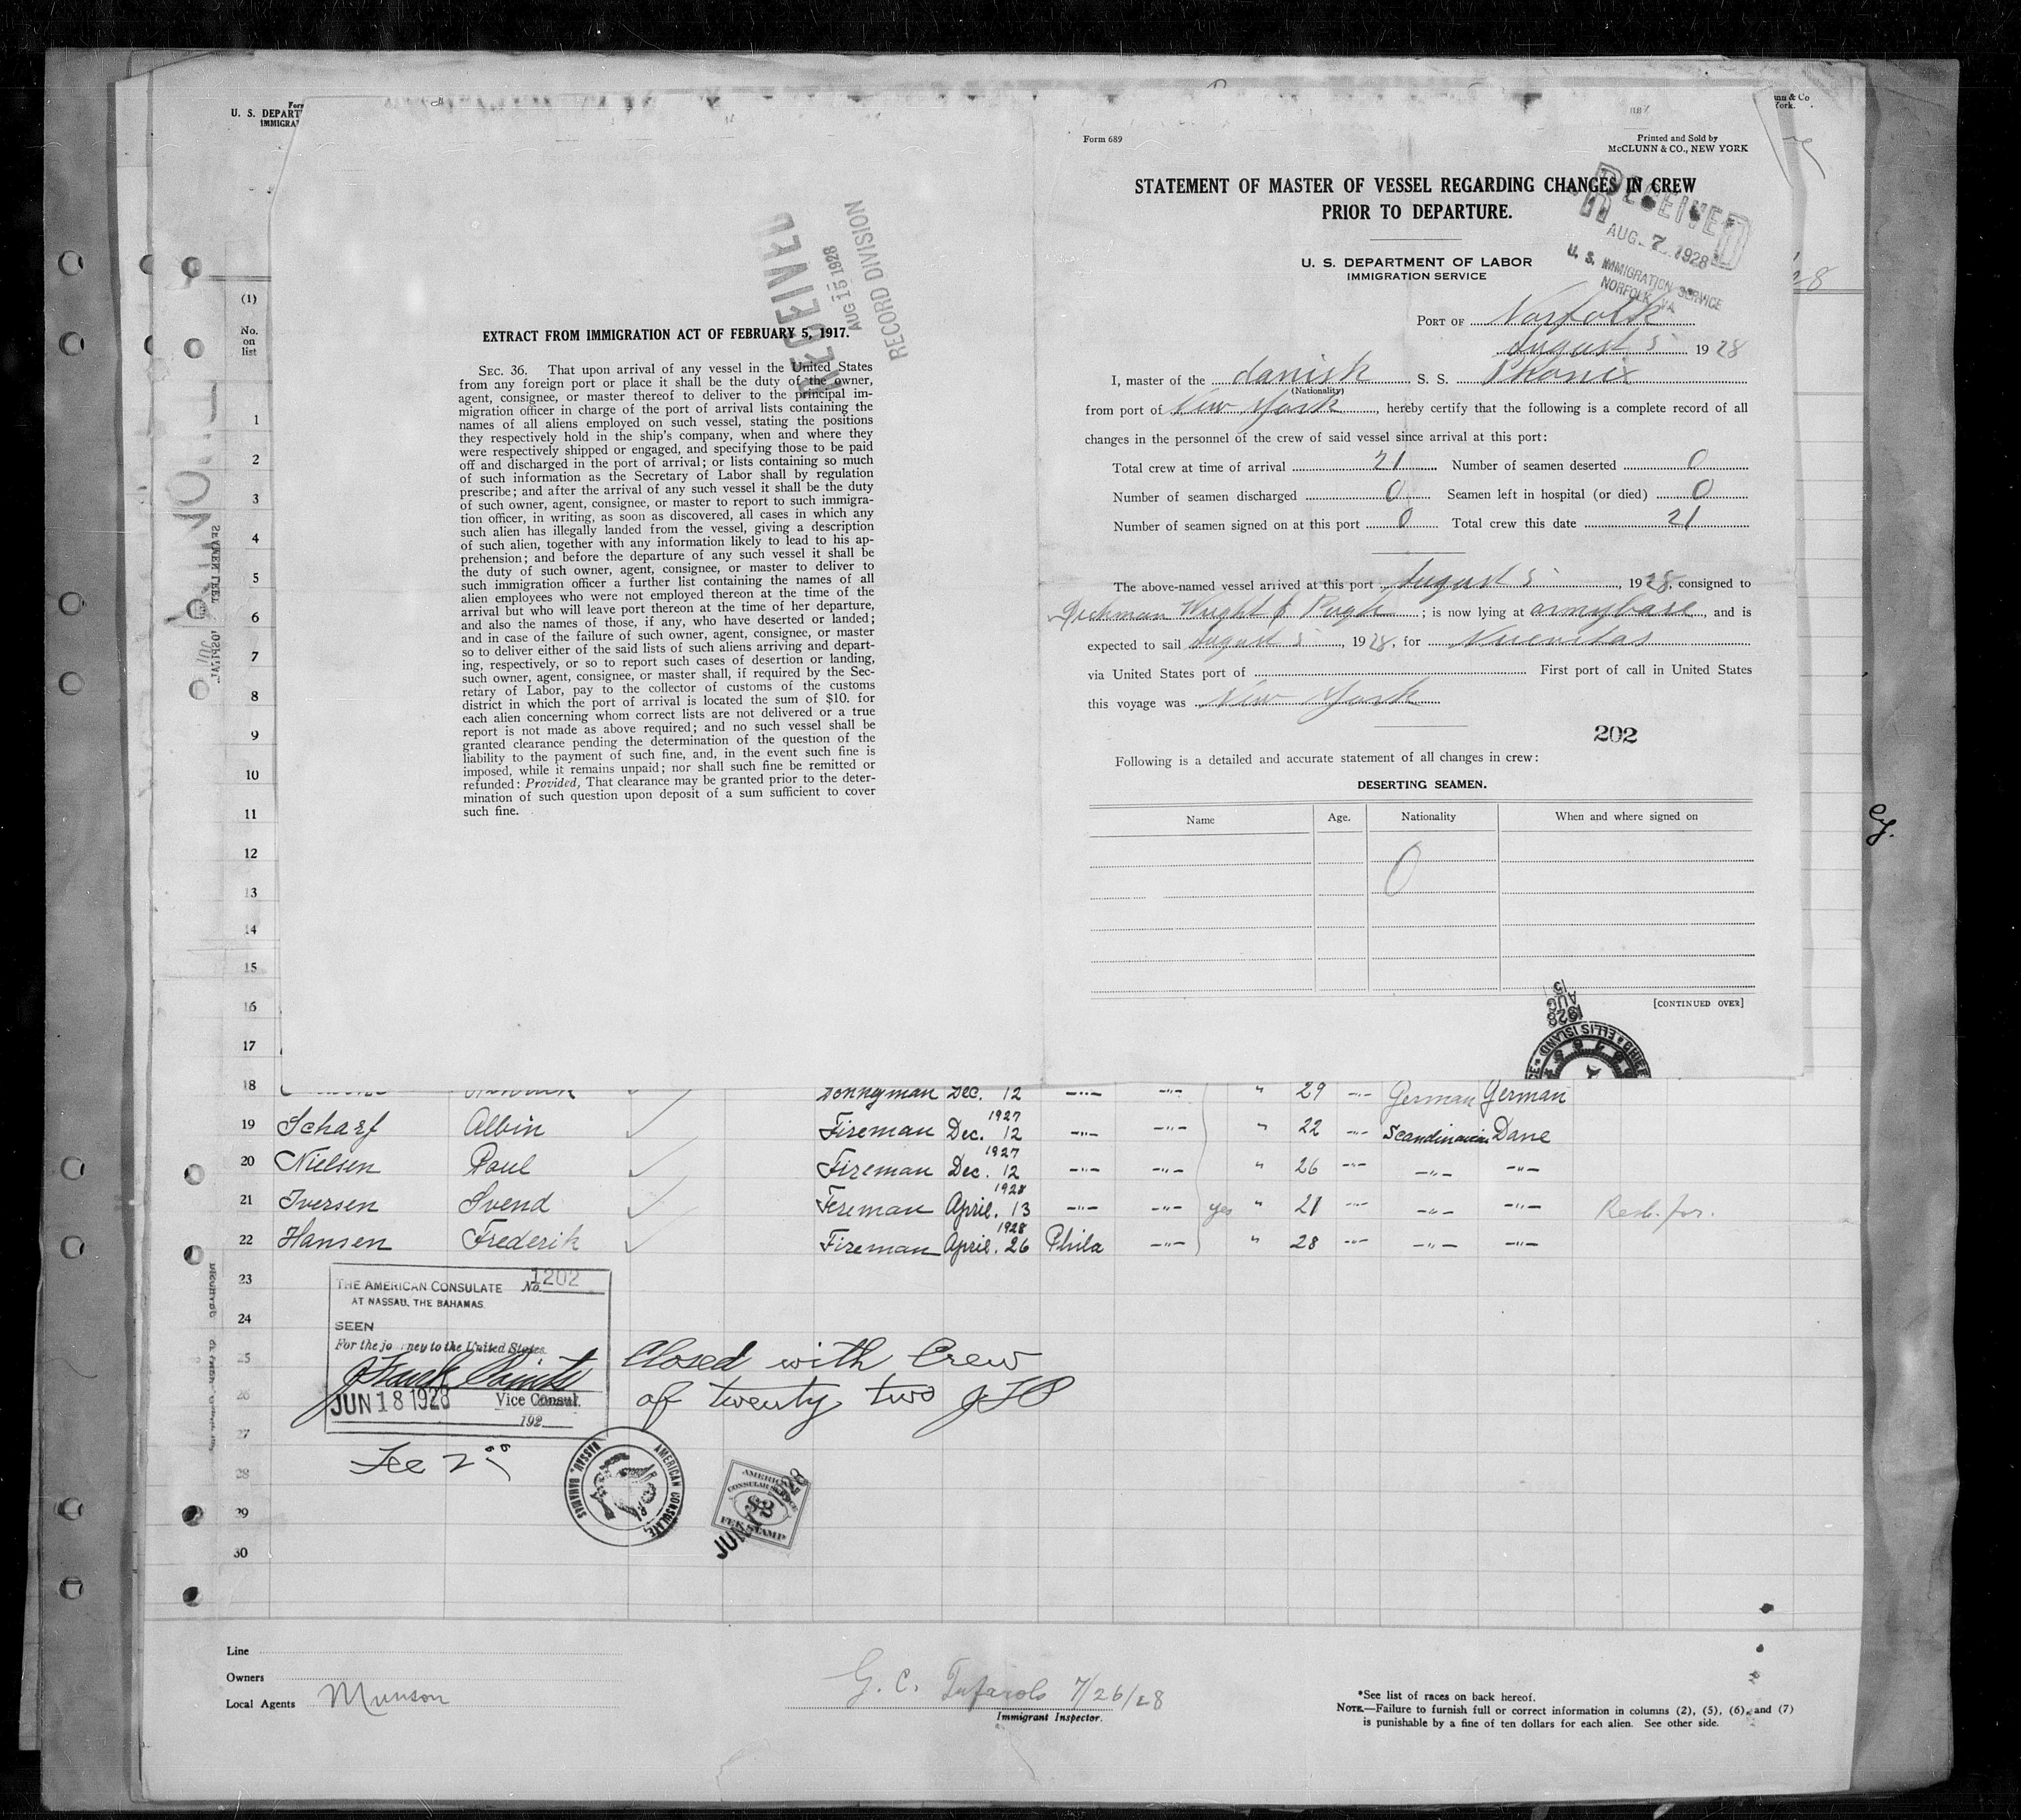 U. S. DEPART
IMMIGRA
(1)
No.
on
list
1
2
3
4
5
6
7
8
9
10
11
12
13
14
15
16
17
RECEIVED
AUG 15 1928
RECORD DIVISION
EXTRACT FROM IMMIGRATION ACT OF FEBRUARY 5, 1917.
SEC. 36. That upon arrival of any vessel in the United States
from any foreign port or place it shall be the duty of the owner,
agent, consignee, or master thereof to deliver to the principal im-
migration officer in charge of the port of arrival lists containing the
names of all aliens employed on such vessel, stating the positions
they respectively hold in the ship's company, when and where they
were respectively shipped or engaged, and specifying those to be paid
off and discharged in the port of arrival; or lists containing so much
of such information as the Secretary of Labor shall by regulation
prescribe; and after the arrival of any such vessel it shall be the duty
of such owner, agent, consignee, or master to report to such immigra-
tion officer, in writing, as soon as discovered, all cases in which any
such alien has illegally landed from the vessel, giving a description
of such alien, together with any information likely to lead to his ap-
prehension; and before the departure of any such vessel it shall be
the duty of such owner, agent, consignee, or master to deliver to
such immigration officer a further list containing the names of all
alien employees who were not employed thereon at the time of the
arrival but who will leave port thereon at the time of her departure,
and also the names of those, if any, who have deserted or landed;
and in case of the failure of such owner, agent, consignee, or master
so to deliver either of the said lists of such aliens arriving and depart-
ing, respectively, or so to report such cases of desertion or landing,
such owner, agent, consignee, or master shall, if required by the Sec-
retary of Labor, pay to the collector of customs of the customs
district in which the port of arrival is located the sum of $10. for
each alien concerning whom correct lists are not delivered or a true
report is not made as above required; and no such vessel shall be
granted clearance pending the determination of the question of the
liability to the payment of such fine, and, in the event such fine is
imposed, while it remains unpaid; nor shall such fine be remitted or
refunded: Provided, That clearance may be granted prior to the deter-
mination of such question upon deposit of a sum sufficient to cover
such fine.
Form 689
Printed and Sold by
McCLUNN & CO., NEW YORK
STATEMENT OF MASTER OF VESSEL REGARDING CHANGES IN CREW
PRIOR TO DEPARTURE.
RECEIVED
AUG. 7. 1928
U. S. IMMIGRATION SERVICE
NORFOLK VA
U. S. DEPARTMENT OF LABOR
IMMIGRATION SERVICE
PORT OF Norfolk
August 5 1928
I, master of the danish S. S. Phönix
(Nationality)
from port of New York, hereby certify that the following is a complete record of all
changes in the personnel of the crew of said vessel since arrival at this port:
Total crew at time of arrival 21 Number of seamen deserted 0
Number of seamen discharged 0 Seamen left in hospital (or died) 0
Number of seamen signed on at this port 0 Total crew this date 21
The above-named vessel arrived at this port August 5, 1928, consigned to
Dichman Wright & Pugh; is now lying at armybase, and is
expected to sail August 5, 1928, for Nuevitas
via United States port of First port of call in United States
this voyage was New York
202
Following is a detailed and accurate statement of all changes in crew:
DESERTING SEAMEN.
Name Age. Nationality When and where signed on
0
[CONTINUED OVER]
1928
AUG
15
ELLIS ISLAND
18 Donkeyman Dec. 12 -"- -"- " 29 -"- German German
19 Scharf Albin Fireman 1927 Dec. 12 -"- -"- " 22 -"- Scandinavian Dane
20 Nielsen Poul Fireman 1927 Dec. 12 -"- -"- " 26 -"- -"- -"-
21 Iversen Svend Fireman 1928 April. 13 -"- -"- yes " 21 -"- -"- -"-
22 Hansen Frederik Fireman 1928 April. 26 Phila -"- " 28 -"- -"- -"-
23
24
25
26
27
28
29
30
THE AMERICAN CONSULATE No. 1202
AT NASSAU, THE BAHAMAS
SEEN
For the journey to the United States
JUN 18 1928 Vice Consul.
192
Closed with Crew
of twenty two
Fee 2
AMERICAN CONSULATE, NASSAU, BAHAMAS
AMERICAN
CONSULAR SERVICE
$2
FEE STAMP
Line
Owners
Local Agents Munson
G. C. 7/26/28
Immigrant Inspector.
*See list of races on back hereof.
NOTE.—Failure to furnish full or correct information in columns (2), (5), (6), and (7)
is punishable by a fine of ten dollars for each alien. See other side.